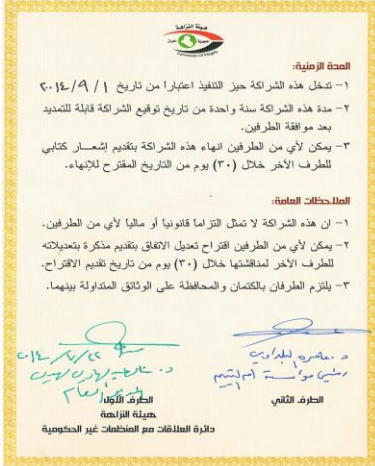 هيئة النزاهة
جمهورية العراق
Commission Of Integrity
المدة الزمنية:
١- تدخل هذه الشراكة حيز التنفيذ اعتباراً من تاريخ ١ / ٩ / ٢٠١٤
٢- مدة هذه الشراكة سنة واحدة من تاريخ توقيع الشراكة قابلة للتمديد
بعد موافقة الطرفين.
٣- يمكن لأي من الطرفين انهاء هذه الشراكة بتقديم إشعـــار كتابي
للطرف الآخر خلال (٣٠) يوم من التاريخ المقترح للإنهاء.
الملاحظات العامة:
١- ان هذه الشراكة لا تمثل التزاماً قانونياً أو مالياً لأي من الطرفين.
٢- يمكن لأي من الطرفين اقتراح تعديل الاتفاق بتقديم مذكرة بتعديلاته
للطرف الآخر لمناقشتها خلال (٣٠) يوم من تاريخ تقديم الاقتراح.
٣- يلتزم الطرفان بالكتمان والمحافظة على الوثائق المتداولة بينهما.
د. عامرة البلداوي
رئيس مؤسسة ام اليتيم
الطرف الثاني
المدير العام
الطرف الأول
هيئة النزاهة
دائرة العلاقات مع المنظمات غير الحكومية